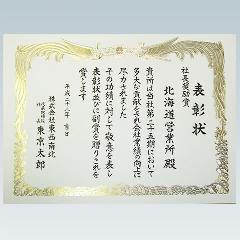 表彰状
社長奨励賞
北海道営業所 殿
貴所は当社第二十五期において
多大な貢献をされ会社業績の向上に
尽力されました
その功績に対して敬意を表し
表彰状並びに副賞を贈りこれを
賞します
平成二十八年 吉日
株式会社東西南北
東京太郎